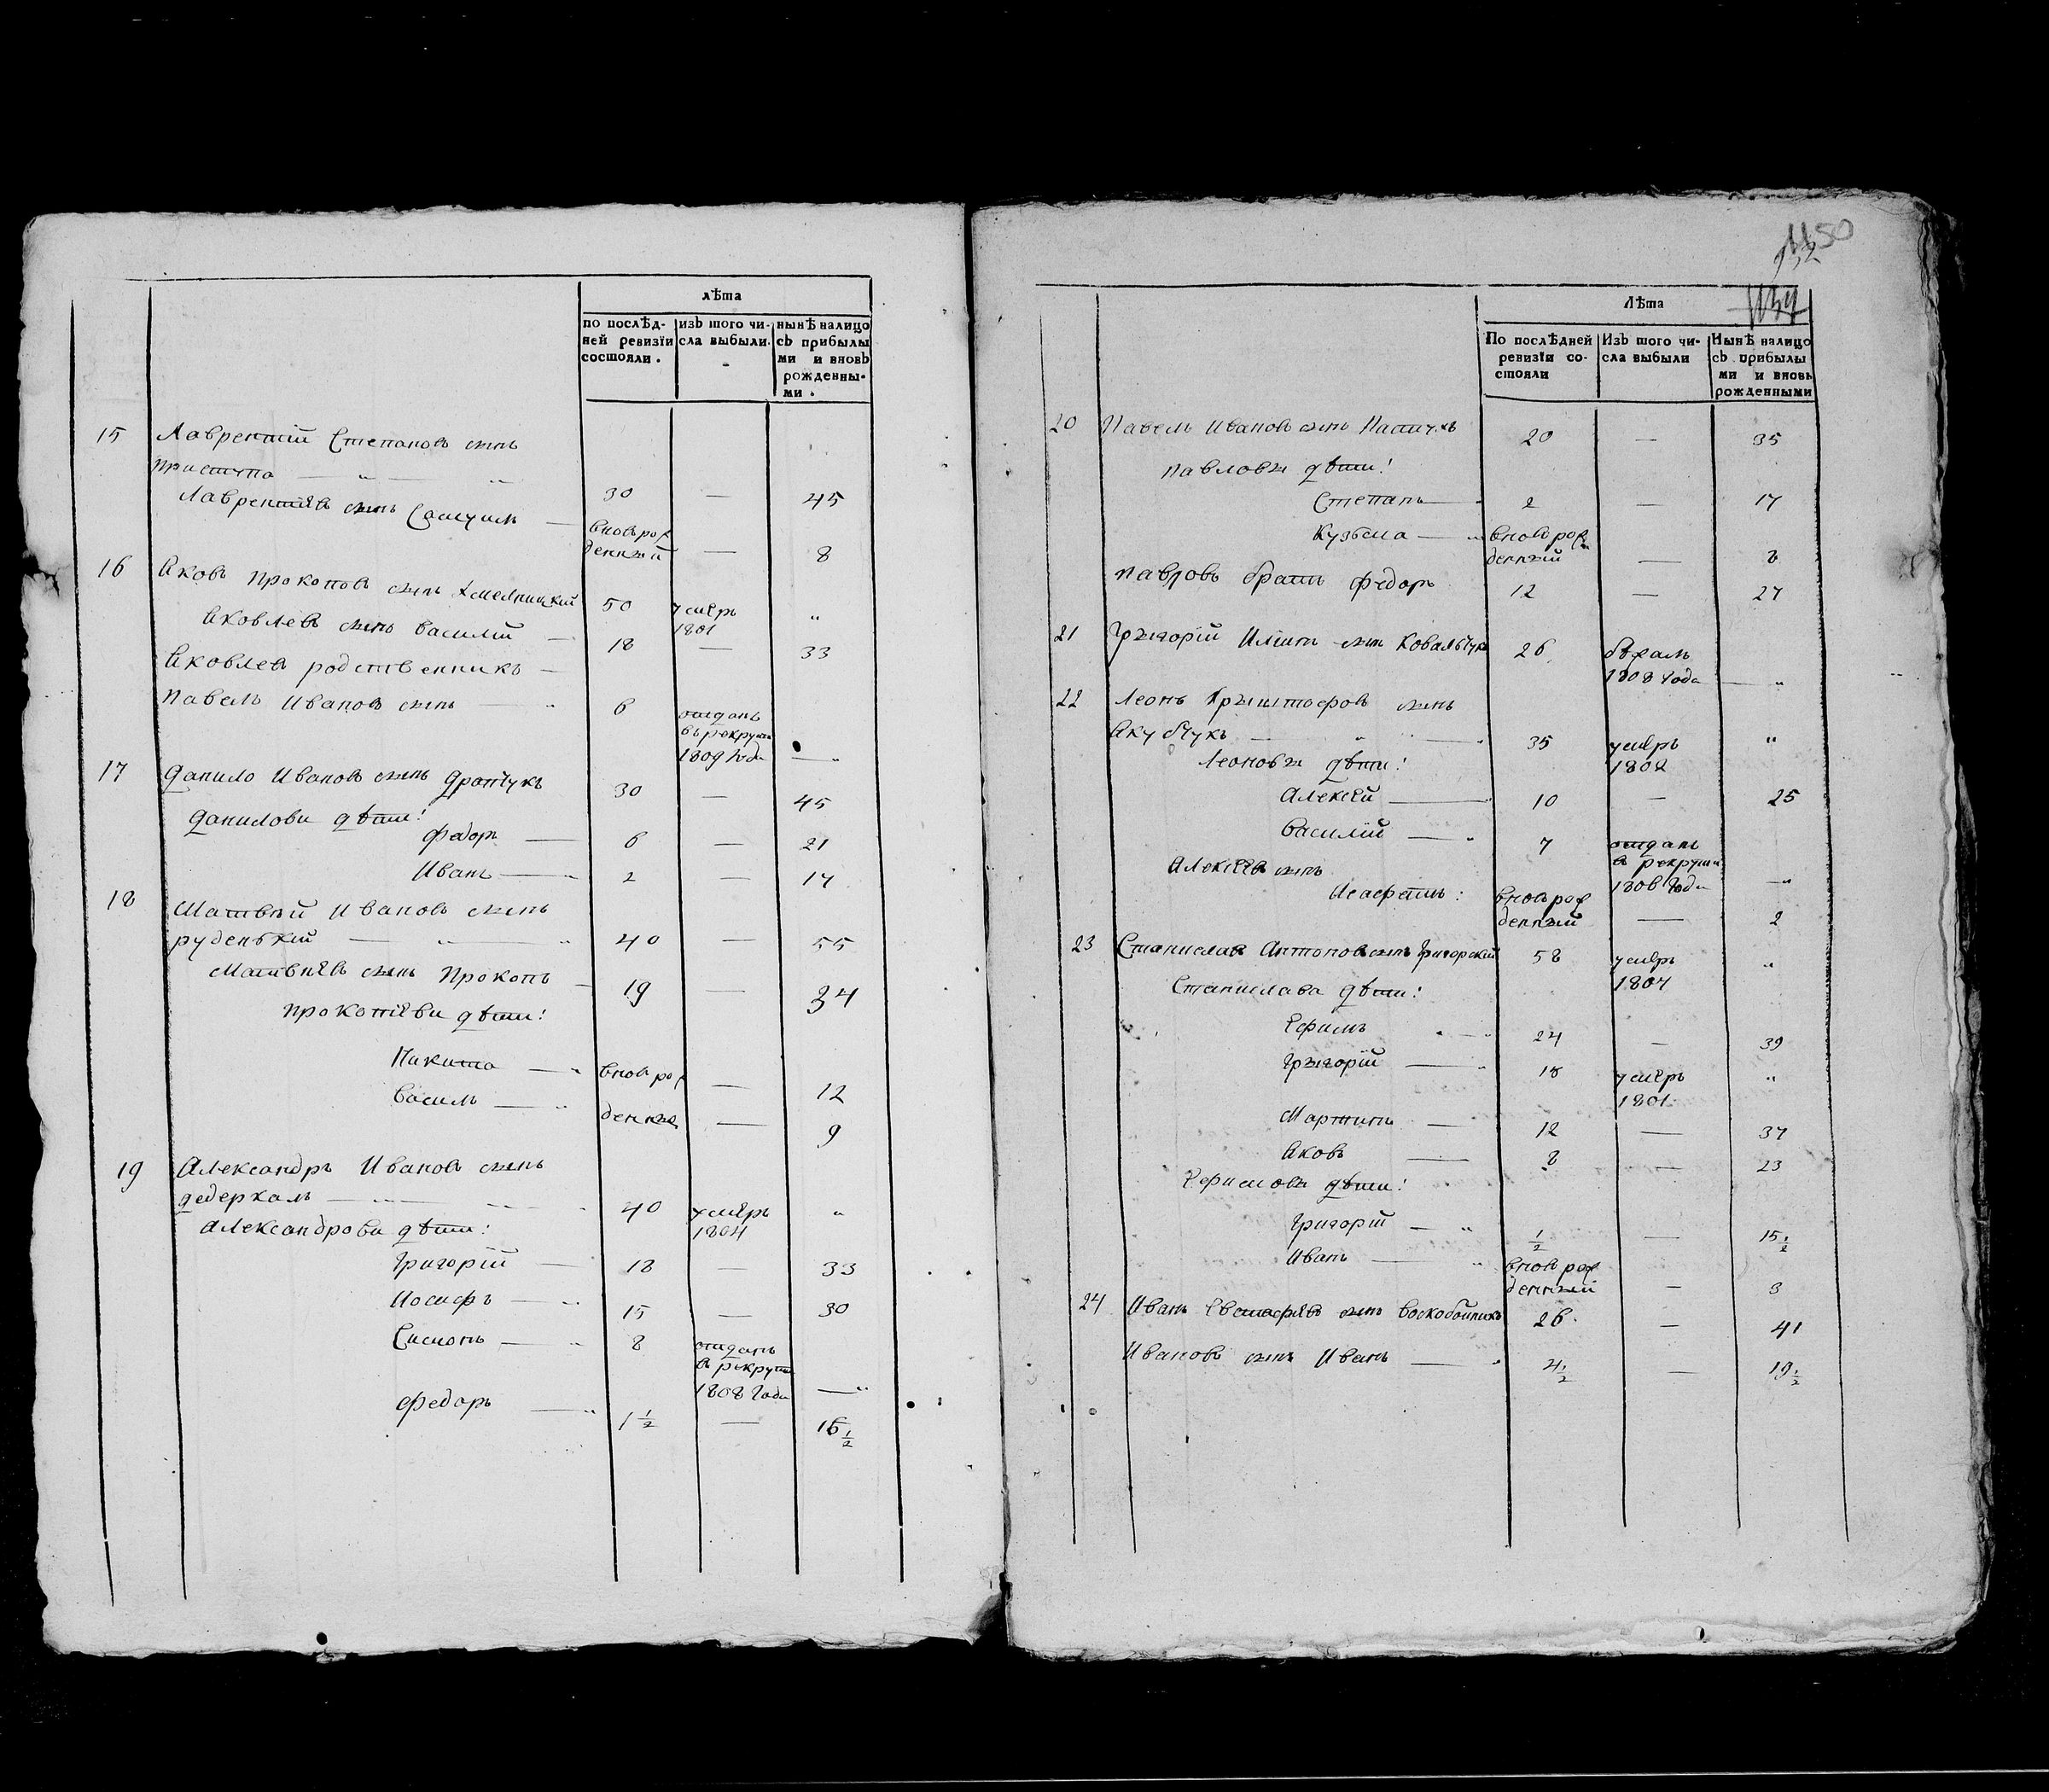 лѣта
по послѣд- изъ того чи- нынѣ налицо
ней ревизїи сла выбыли. съ прибылы
состояли. ми и вновь
рожденны-
ми.
15 Лаврентій Степановъ сынъ
приступа
30 — 45
Лаврентіевъ сынъ Самуилъ
вновьрож
денный — 8
16 Яковъ Прокоповъ сынъ Хмелницкій 50 умеръ 1801 „
Яковлевъ сынъ Василій — 18 — 33
Яковлевъ родственникъ —
Павелъ Ивановъ сынъ — 6 отданъ
въ рекруты
1809 года — „
17 Данило Ивановъ сынъ 30 — 45
Данилови дѣти:
Федоръ — 6 — 21
Иванъ — 2 — 17
18 Матвѣй Ивановъ сынъ
руденькій — 40 — 55
Матвѣевъ сынъ Прокопъ — 19 — 34
Прокопіеви дѣти:
Никита — вновь рож — 12
Василь — денные — 9
19 Александръ Ивановъ сынъ
дедеркалъ — 40 умеръ 1804 „
Александрови дѣти:
Григорій — 18 — 33
Иосифъ — 15 — 30
Симонъ — 8 отданъ
в рекруты
1808 года — „
Федоръ — 1 1/2 — 16 1/2
50
Лѣта
По послѣдней Изъ того чи- Нынѣ налицо
ревизїи со- сла выбыли съ прибылы
стояли ми и вновь
рожденными
20 Павелъ Ивановъ сынъ 20 — 35
Павловы дѣти:
Степанъ — 2 — 17
Кузьма — вновь рож
денный — 8
Павловъ братъ Федоръ 12 — 27
21 Грыгорій сынъ Ковальчукъ 26 бѣжалъ
1808 года — „
22 Леонъ Крыштофовъ сынъ
Якубчукъ — 35 умеръ 1802 „
Леоновы дѣти:
Алексѣй — 10 — 25
Василій — 7 отданъ
в рекруты
1806 года — „
Алексѣевъ сынъ
вновь рож
денный — 2
23 Станиславъ Антоновъ сынъ Григорскій 58 умеръ 1807 „
Станислава дѣти:
Ефимъ 24 — 39
Грыгорій — 18 умеръ 1801 „
Мартинъ — 12 — 37
Яковъ — 8 — 23
Ефимовы дѣти:
Григорій — 1/2 — 15 1/2
Иванъ — вновь рож
денный — 3
24 Иванъ сынъ Воскобойникъ 26 — 41
Ивановъ сынъ Иванъ — 4 1/2 — 19 1/2